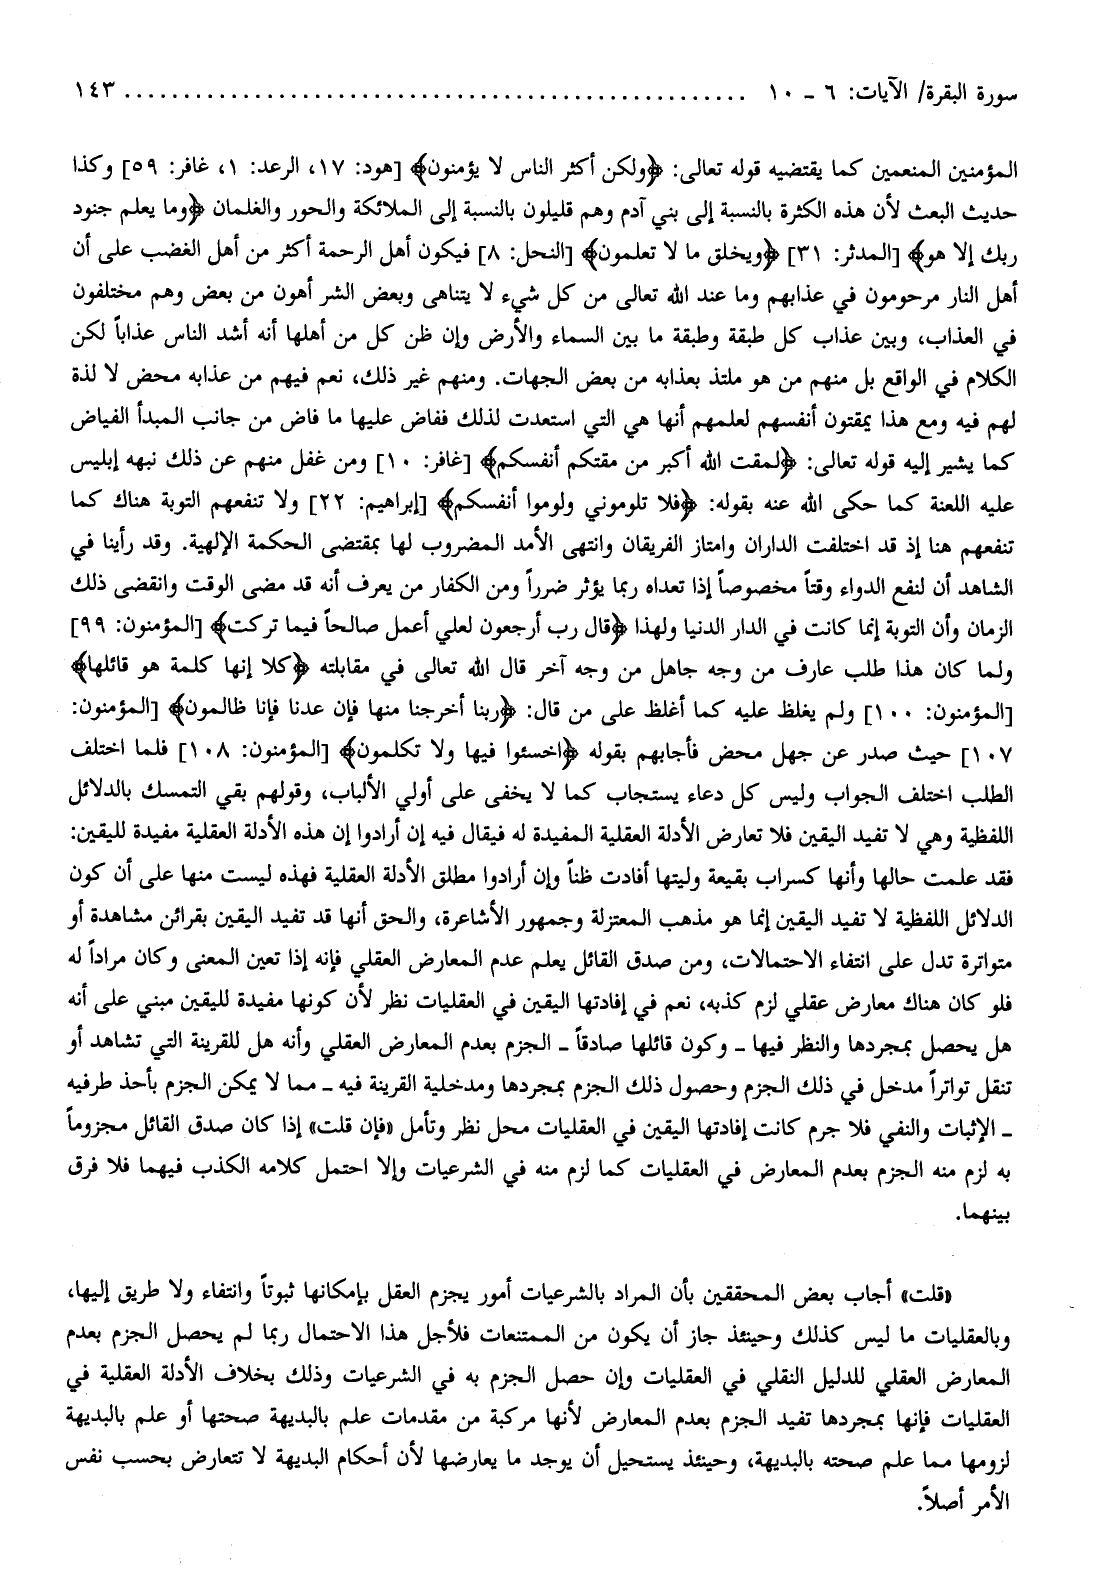 سورة البقرة/ الآيات: ٦ ـ ١٠ ..................................................... ١٤٣
المؤمنين المنعمين كما يقتضيه قوله تعالى: ﴿ولكن أكثر الناس لا يؤمنون﴾ [هود: ١٧، الرعد: ١، غافر: ٥٩] وكذا
حديث البعث لأن هذه الكثرة بالنسبة إلى بني آدم وهم قليلون بالنسبة إلى الملائكة والحور والغلمان ﴿وما يعلم جنود
ربك إلا هو﴾ [المدثر: ٣١] ﴿ويخلق ما لا تعلمون﴾ [النحل: ٨] فيكون أهل الرحمة أكثر من أهل الغضب على أن
أهل النار مرحومون في عذابهم وما عند الله تعالى من كل شيء لا يتناهى وبعض الشر أهون من بعض وهم مختلفون
في العذاب، وبين عذاب كل طبقة وطبقة ما بين السماء والأرض وإن ظن كل من أهلها أنه أشد الناس عذاباً لكن
الكلام في الواقع بل منهم من هو ملتذ بعذابه من بعض الجهات. ومنهم غير ذلك، نعم فيهم من عذابه محض لا لذة
لهم فيه ومع هذا يمقتون أنفسهم لعلمهم أنها هي التي استعدت لذلك ففاض عليها ما فاض من جانب المبدأ الفياض
كما يشير إليه قوله تعالى: ﴿لمقت الله أكبر من مقتكم أنفسكم﴾ [غافر: ١٠] ومن غفل منهم عن ذلك نبهه إبليس
عليه اللعنة كما حكى الله عنه بقوله: ﴿فلا تلوموني ولوموا أنفسكم﴾ [إبراهيم: ٢٢] ولا تنفعهم التوبة هناك كما
تنفعهم هنا إذ قد اختلفت الداران وامتاز الفريقان وانتهى الأمد المضروب لها بمقتضى الحكمة الإلهية. وقد رأينا في
الشاهد أن لنفع الدواء وقتاً مخصوصاً إذا تعداه ربما يؤثر ضرراً ومن الكفار من يعرف أنه قد مضى الوقت وانقضى ذلك
الزمان وأن التوبة إنما كانت في الدار الدنيا ولهذا ﴿قال رب أرجعون لعلي أعمل صالحاً فيما تركت﴾ [المؤمنون: ٩٩]
ولما كان هذا طلب عارف من وجه جاهل من وجه آخر قال الله تعالى في مقابلته ﴿كلا إنها كلمة هو قائلها﴾
[المؤمنون: ١٠٠] ولم يغلظ عليه كما أغلظ على من قال: ﴿ربنا أخرجنا منها فإن عدنا فإنا ظالمون﴾ [المؤمنون:
١٠٧] حيث صدر عن جهل محض فأجابهم بقوله ﴿اخسئوا فيها ولا تكلمون﴾ [المؤمنون: ١٠٨] فلما اختلف
الطلب اختلف الجواب وليس كل دعاء يستجاب كما لا يخفى على أولي الألباب، وقولهم بقي التمسك بالدلائل
اللفظية وهي لا تفيد اليقين فلا تعارض الأدلة العقلية المفيدة له فيقال فيه إن أرادوا إن هذه الأدلة العقلية مفيدة لليقين:
فقد علمت حالها وأنها كسراب بقيعة وليتها أفادت ظناً وإن أرادوا مطلق الأدلة العقلية فهذه ليست منها على أن كون
الدلائل اللفظية لا تفيد اليقين إنما هو مذهب المعتزلة وجمهور الأشاعرة، والحق أنها قد تفيد اليقين بقرائن مشاهدة أو
متواترة تدل على انتفاء الاحتمالات، ومن صدق القائل يعلم عدم المعارض العقلي فإنه إذا تعين المعنى وكان مراداً له
فلو كان هناك معارض عقلي لزم كذبه، نعم في إفادتها اليقين في العقليات نظر لأن كونها مفيدة لليقين مبني على أنه
هل يحصل بمجردها والنظر فيها ـ وكون قائلها صادقاً ـ الجزم بعدم المعارض العقلي وأنه هل للقرينة التي تشاهد أو
تنقل تواتراً مدخل في ذلك الجزم وحصول ذلك الجزم بمجردها ومدخلية القرينة فيه ـ مما لا يمكن الجزم بأحذ طرفيه
ـ الإثبات والنفي فلا جرم كانت إفادتها اليقين في العقليات محل نظر وتأمل «فإن قلت» إذا كان صدق القائل مجزوماً
به لزم منه الجزم بعدم المعارض في العقليات كما لزم منه في الشرعيات وإلا احتمل كلامه الكذب فيهما فلا فرق
بينهما.
«قلت» أجاب بعض المحققين بأن المراد بالشرعيات أمور يجزم العقل بإمكانها ثبوتاً وانتفاء ولا طريق إليها،
وبالعقليات ما ليس كذلك وحينئذ جاز أن يكون من الممتنعات فلأجل هذا الاحتمال ربما لم يحصل الجزم بعدم
المعارض العقلي للدليل النقلي في العقليات وإن حصل الجزم به في الشرعيات وذلك بخلاف الأدلة العقلية في
العقليات فإنها بمجردها تفيد الجزم بعدم المعارض لأنها مركبة من مقدمات علم بالبديهة صحتها أو علم بالبديهة
لزومها مما علم صحته بالبديهة، وحينئذ يستحيل أن يوجد ما يعارضها لأن أحكام البديهة لا تتعارض بحسب نفس
الأمر أصلاً.